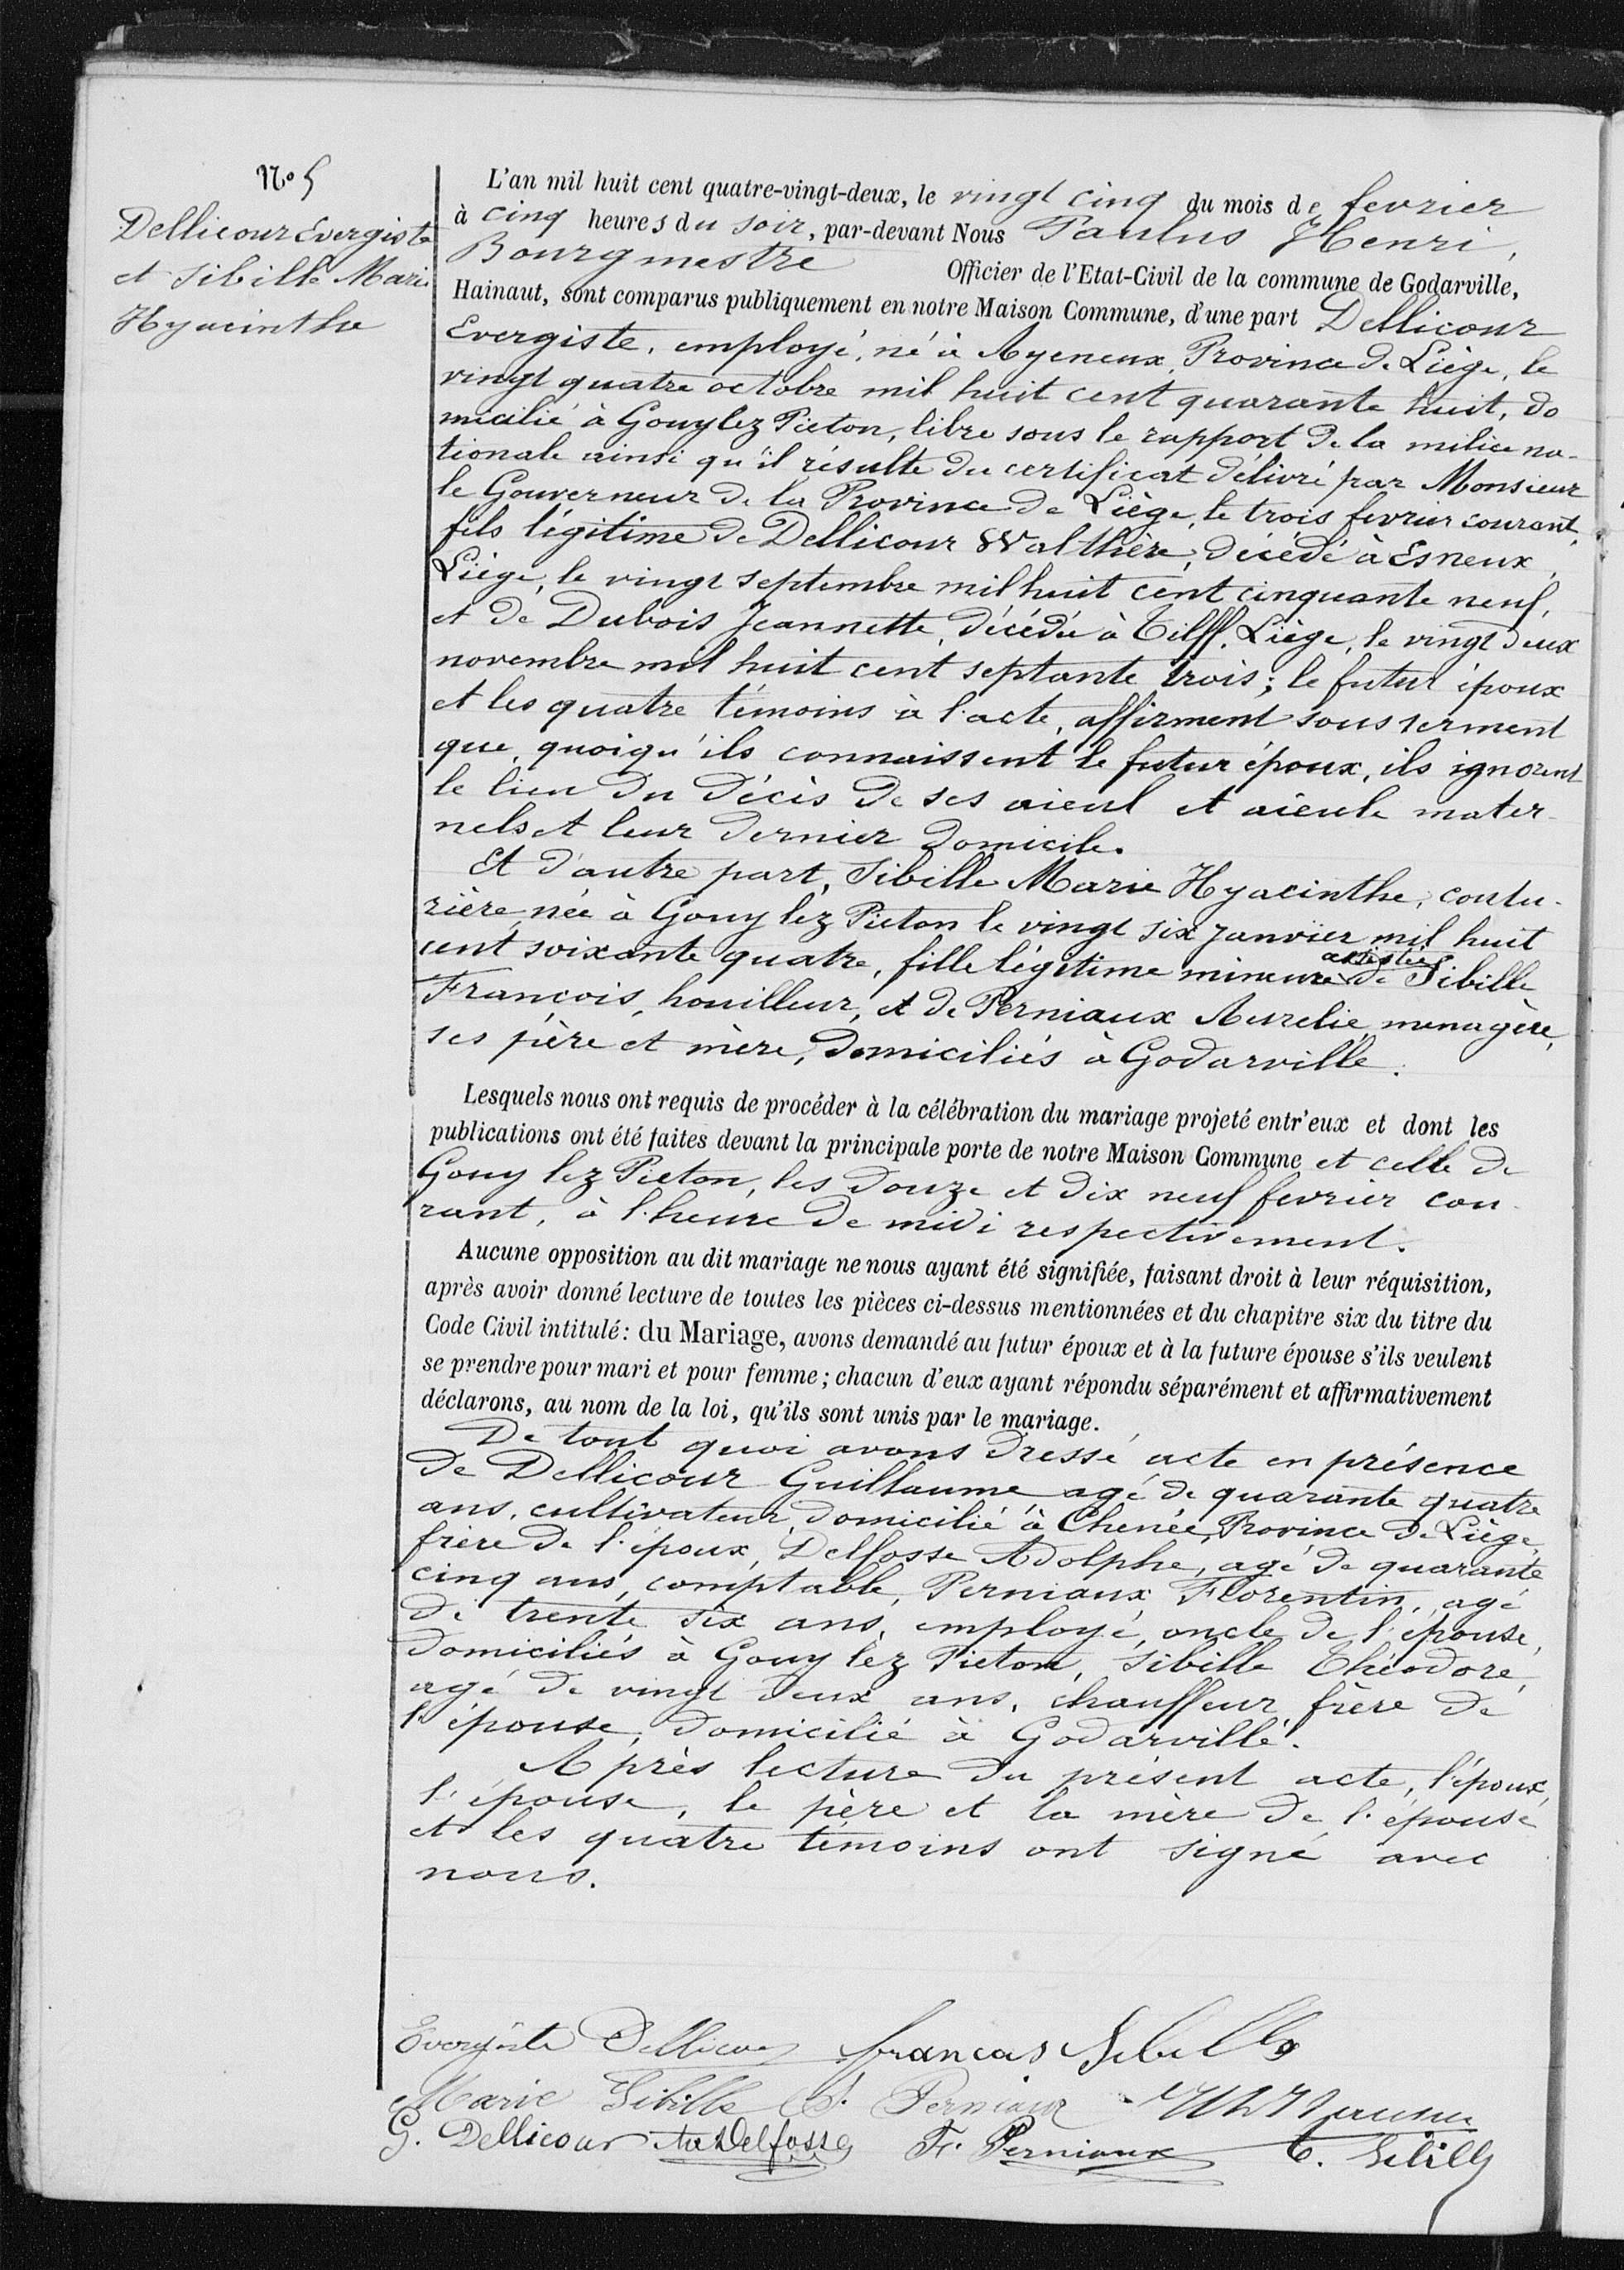 No 5
Dellicour Evergiste
et Sibille Marie
Hyacinthe
L'an mil huit cent quatre-vingt-deux, le vingt cinq du mois de fevrier
à cinq heures du soir, par-devant Nous Paulus Henri,
Bourgmestre Officier de l'Etat-Civil de la commune de Godarville,
Hainaut, sont comparus publiquement en notre Maison Commune, d'une part Dellicour
Evergiste, employé, né à Ayeneux, Province de Liège, le
vingt quatre octobre mil huit cent quarante huit, do
micilié à Gouy lez Piéton, libre sous le rapport de la milice na-
tionale ainsi qu'il résulte du certificat délivré par Monsieur
le Gouverneur de la Province de Liège, le trois fevrier courant,
fils légitime de Dellicour Walthère, décédé à Esneux,
Liège, le vingt septembre mil huit cent cinquante neuf,
et de Dubois Jeannette, décédée à Tilff, Liège, le vingt deux
novembre mil huit cent septante trois; le futur époux
et les quatre témoins à l'acte, affirment sous serment
que, quoiqu'ils connaissent le futur époux, ils ignorent
le lieu du décès de ses aieul et aieule mater-
nels et leur dernier domicile.
Et d'autre part, Sibille Marie Hyacinthe, coutu-
rière, née à Gouy lez Piéton le vingt six janvier mil huit
cent soixante quatre, fille légitime mineure assistée de Sibille
François, houilleur, et de Perniaux Aurelie, menagère,
ses père et mère, domiciliés à Godarville.
Lesquels nous ont requis de procéder à la célébration du mariage projeté entr'eux et dont les
publications ont été faites devant la principale porte de notre Maison Commune et celle de
Gouy lez Piéton, les douze et dix neuf fevrier cou-
rant, à l'heure de midi respectivement.
Aucune opposition au dit mariage ne nous ayant été signifiée, faisant droit à leur réquisition,
après avoir donné lecture de toutes les pièces ci-dessus mentionnées et du chapitre six du titre du
Code Civil intitulé: du Mariage, avons demandé au futur époux et à la future épouse s'ils veulent
se prendre pour mari et pour femme; chacun d'eux ayant répondu séparément et affirmativement
déclarons, au nom de la loi, qu'ils sont unis par le mariage.
De tout quoi avons dressé acte en présence
de Dellicour Guillaume agé de quarante quatre
ans, cultivateur, domicilié à Chenée, Province de Liège,
frère de l'époux, Delfosse Adolphe, agé de quarante
cinq ans, comptable, Perniaux Florentin, agé
de trente six ans, employé, oncle de l'épouse,
domiciliés à Gouy lez Piéton, Sibille Théodore,
agé de vingt deux ans, chauffeur, frère de
l'épouse, domicilié à Godarville.
Après lecture du présent acte, l'époux,
l'épouse, le père et la mère de l'épouse
et les quatre témoins ont signé avec
nous.
Evergiste Dellicour francas Sibille
Marie Sibille Perniaux
G. Dellicour Ad Delfosse Fl. Perniaux T. Sibille